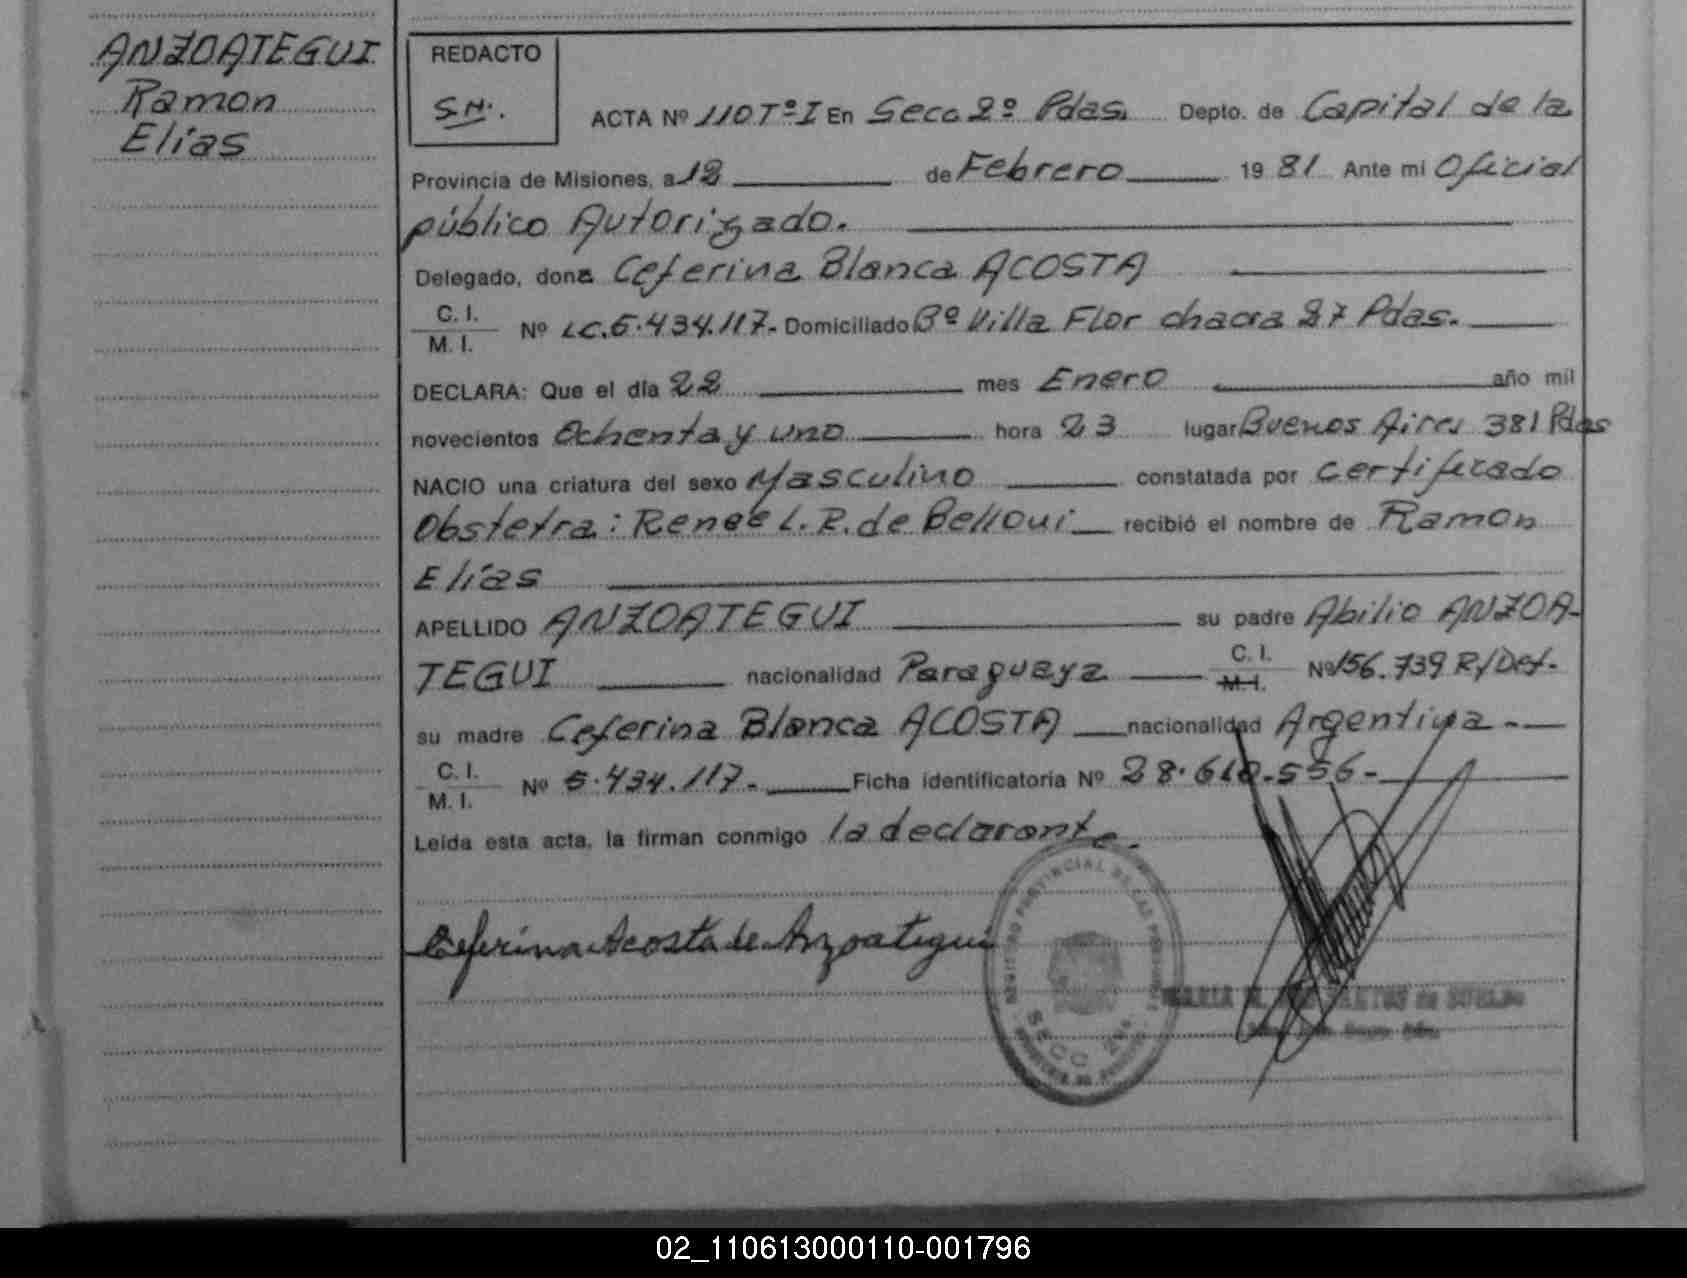 ANZOATEGUI
Ramon
Elias
REDACTO
S.H.
ACTA Nº 110 Tº I En Secc 2º Pdas. Depto. de Capital de la
Provincia de Misiones, a 12 de Febrero 1981 Ante mi Oficial
público Autorizado.
Delegado, dona Ceferina Blanca ACOSTA
C. I.
M. I. Nº LC.5.434.117.- Domiciliado Bº Villa Flor chacra 27 Pdas.
DECLARA: Que el día 22 mes Enero año mil
novecientos Ochenta y uno hora 23 lugar Buenos Aires 381 Pdas
NACIO una criatura del sexo Masculino constatada por certificado
Obstetra: Renee L. R. de Belloui recibió el nombre de Ramon
Elías
APELLIDO ANZOATEGUI su padre Abilio ANZOA-
TEGUI nacionalidad Paraguaya C. I. M. I. Nº 156.739 R/Def.
su madre Ceferina Blanca ACOSTA nacionalidad Argentina.-
C. I.
M. I. Nº 5.434.117.- Ficha identificatoria Nº 28.610.556-
Leída esta acta, la firman conmigo la declarante.
Ceferina Acosta de Anzoategui
PROVINCIAL DE LAS
SECC 2da.
MARIA
02_110613000110-001796